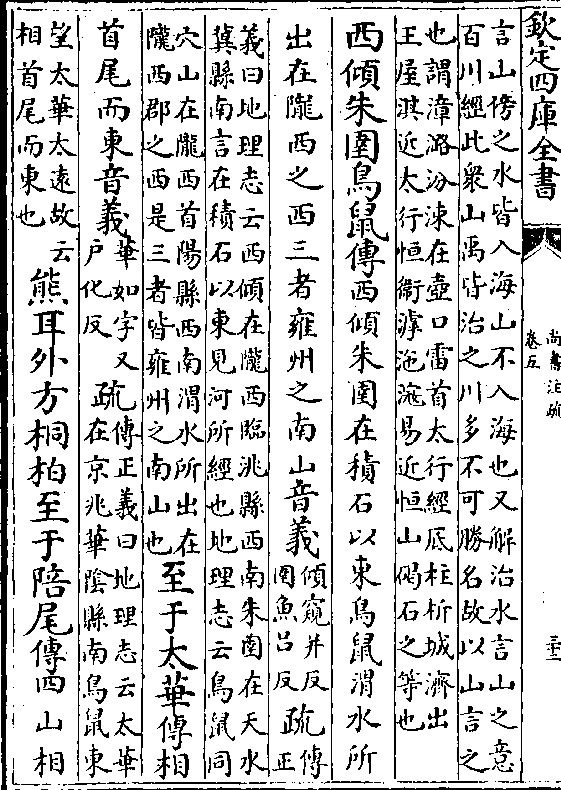 欽定四庫全書
尚書注疏
卷五
言山傍之水皆入海山不入海也又解治水言山之意
百川經此衆山禹皆治之川多不可勝名故以山言之
也謂漳潞汾涑在壺口雷首太行經底柱析城濟出
王屋淇近太行恒衛滹沱滱易近恒山碣石之等也
西傾朱圉鳥鼠傳西傾朱圉在積石以東鳥鼠渭水所
出在隴西之西三者雍州之南山音義傾窺井反圉魚呂反疏傳正
義曰地理志云西傾在隴西臨洮縣西南朱圉在天水
冀縣南言在積石以東見河所經也地理志云鳥鼠同
穴山在隴西首陽縣西南渭水所出在
隴西郡之西是三者皆雍州之南山也至于太華傳相
首尾而東音義華如字又戶化反疏傳正義曰地理志云太華在京兆華陰縣南鳥鼠東
望太華太遠故云相首尾而東也熊耳外方桐柏至于陪尾傳四山相